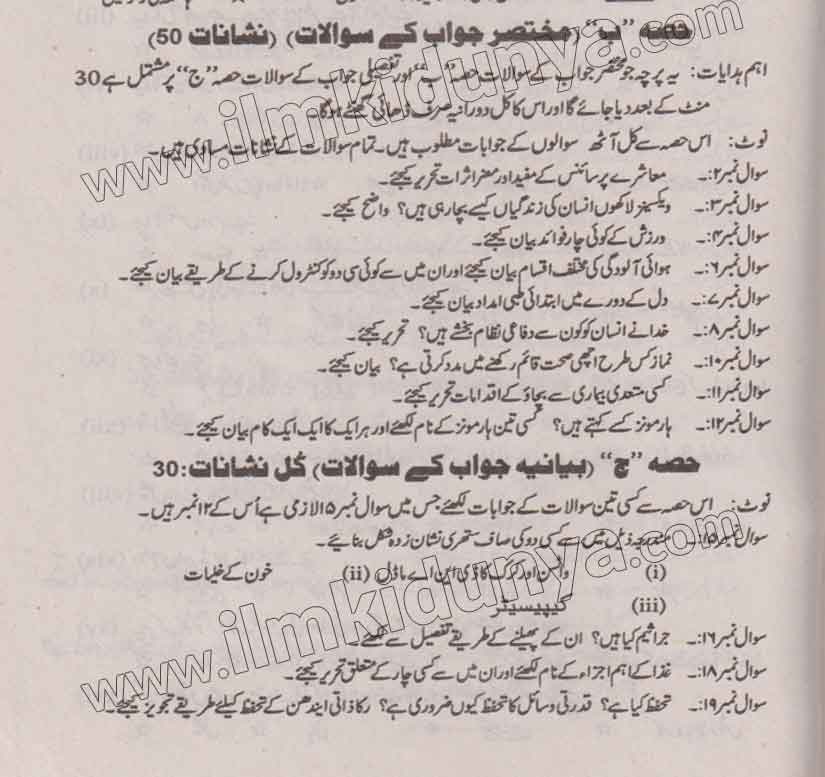 حصہ ”ب“ (مختصر جواب کے سوالات) (نشانات 50)
اہم ہدایات: یہ پرچہ جو مختصر جواب کے سوالات حصہ ”ب“ اور تفصیلی جواب کے سوالات حصہ ”ج“ پر مشتمل ہے 30
منٹ کے بعد دیا جائے گا اور اس کا کل دورانیہ صرف ڈھائی گھنٹے ہوگا۔
نوٹ: اس حصہ سے کل آٹھ سوالوں کے جوابات مطلوب ہیں۔ تمام سوالات کے نشانات مساوی ہیں۔
سوال نمبر ۲:۔ معاشرے پر سائنس کے مفید اور مضر اثرات تحریر کیجئے۔
سوال نمبر ۳:۔ ویکسینز لاکھوں انسان کی زندگیاں کیسے بچا رہی ہیں؟ واضح کیجئے۔
سوال نمبر ۴:۔ ورزش کے کوئی چار فوائد بیان کیجئے۔
سوال نمبر ۶:۔ ہوائی آلودگی کی مختلف اقسام بیان کیجئے اور ان میں سے کوئی سی دو کو کنٹرول کرنے کے طریقے بیان کیجئے۔
سوال نمبر ۷:۔ دل کے دورے میں ابتدائی طبی امداد بیان کیجئے۔
سوال نمبر ۸:۔ خدا نے انسان کو کون سے دفاعی نظام بخشے ہیں؟ تحریر کیجئے۔
سوال نمبر ۱۰:۔ نماز کس طرح اچھی صحت قائم رکھنے میں مدد کرتی ہے؟ بیان کیجئے۔
سوال نمبر ۱۱:۔ کسی متعدی بیماری سے بچاؤ کے اقدامات تحریر کیجئے۔
سوال نمبر ۱۲:۔ ہارمونز کسے کہتے ہیں؟ کسی تین ہارمونز کے نام لکھئے اور ہر ایک کا ایک ایک کام بیان کیجئے۔
حصہ ”ج“ (بیانیہ جواب کے سوالات) کُل نشانات: 30
نوٹ: اس حصہ سے کسی تین سوالات کے جوابات لکھئے، جس میں سوال نمبر ۱۵ لازمی ہے اُس کے ۱۲ نمبر ہیں۔
سوال نمبر ۱۵:۔ مندرجہ ذیل میں سے کسی دو کی صاف ستھری نشان زدہ شکل بنائیے۔
(i) واٹسن اور کرک کا ڈی این اے ماڈل (ii) خون کے خلیات
(iii) کیپیسیٹر
سوال نمبر ۱۶:۔ جراثیم کیا ہیں؟ ان کے پھیلنے کے طریقے تفصیل سے لکھئے۔
سوال نمبر ۱۸:۔ غذا کے اہم اجزاء کے نام لکھئے اور ان میں سے کسی چار کے متعلق تحریر کیجئے۔
سوال نمبر ۱۹:۔ تحفظ کیا ہے؟ قدرتی وسائل کا تحفظ کیوں ضروری ہے؟ رکازاتی ایندھن کے تحفظ کیلئے طریقے تجویز کیجئے۔
www.ilmkidunya.com
www.ilmkidunya.com